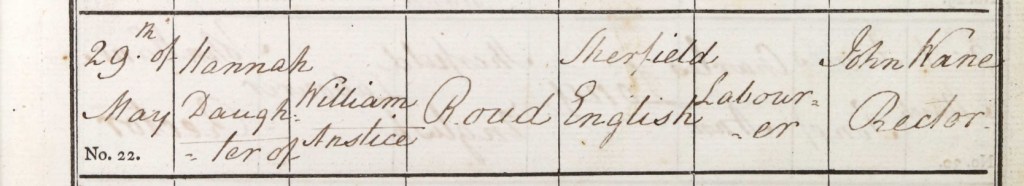 29.th of
May
No. 22.
Hannah
Daugh-
-ter of
William
Anstice
Roud
Sherfield
English
Labour-
-er
John Kane
Rector.